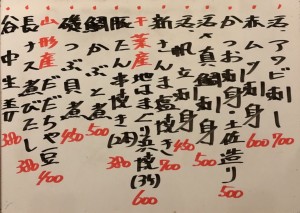 活アワビ刺し 700
赤ムツ刺し 600
かつお刺身 土佐造り 500
活〆真鯛刺身 500
活帆立刺身 450
新さんま塩焼き
千葉産 地はまぐり浜焼(3ケ) 600
豚たん串焼き(2本) 380
鯛かぶと煮 500
磯つぶ貝煮 450
山形産 だだちゃ豆 400
長ナス煮びたし 380
谷中生姜 380